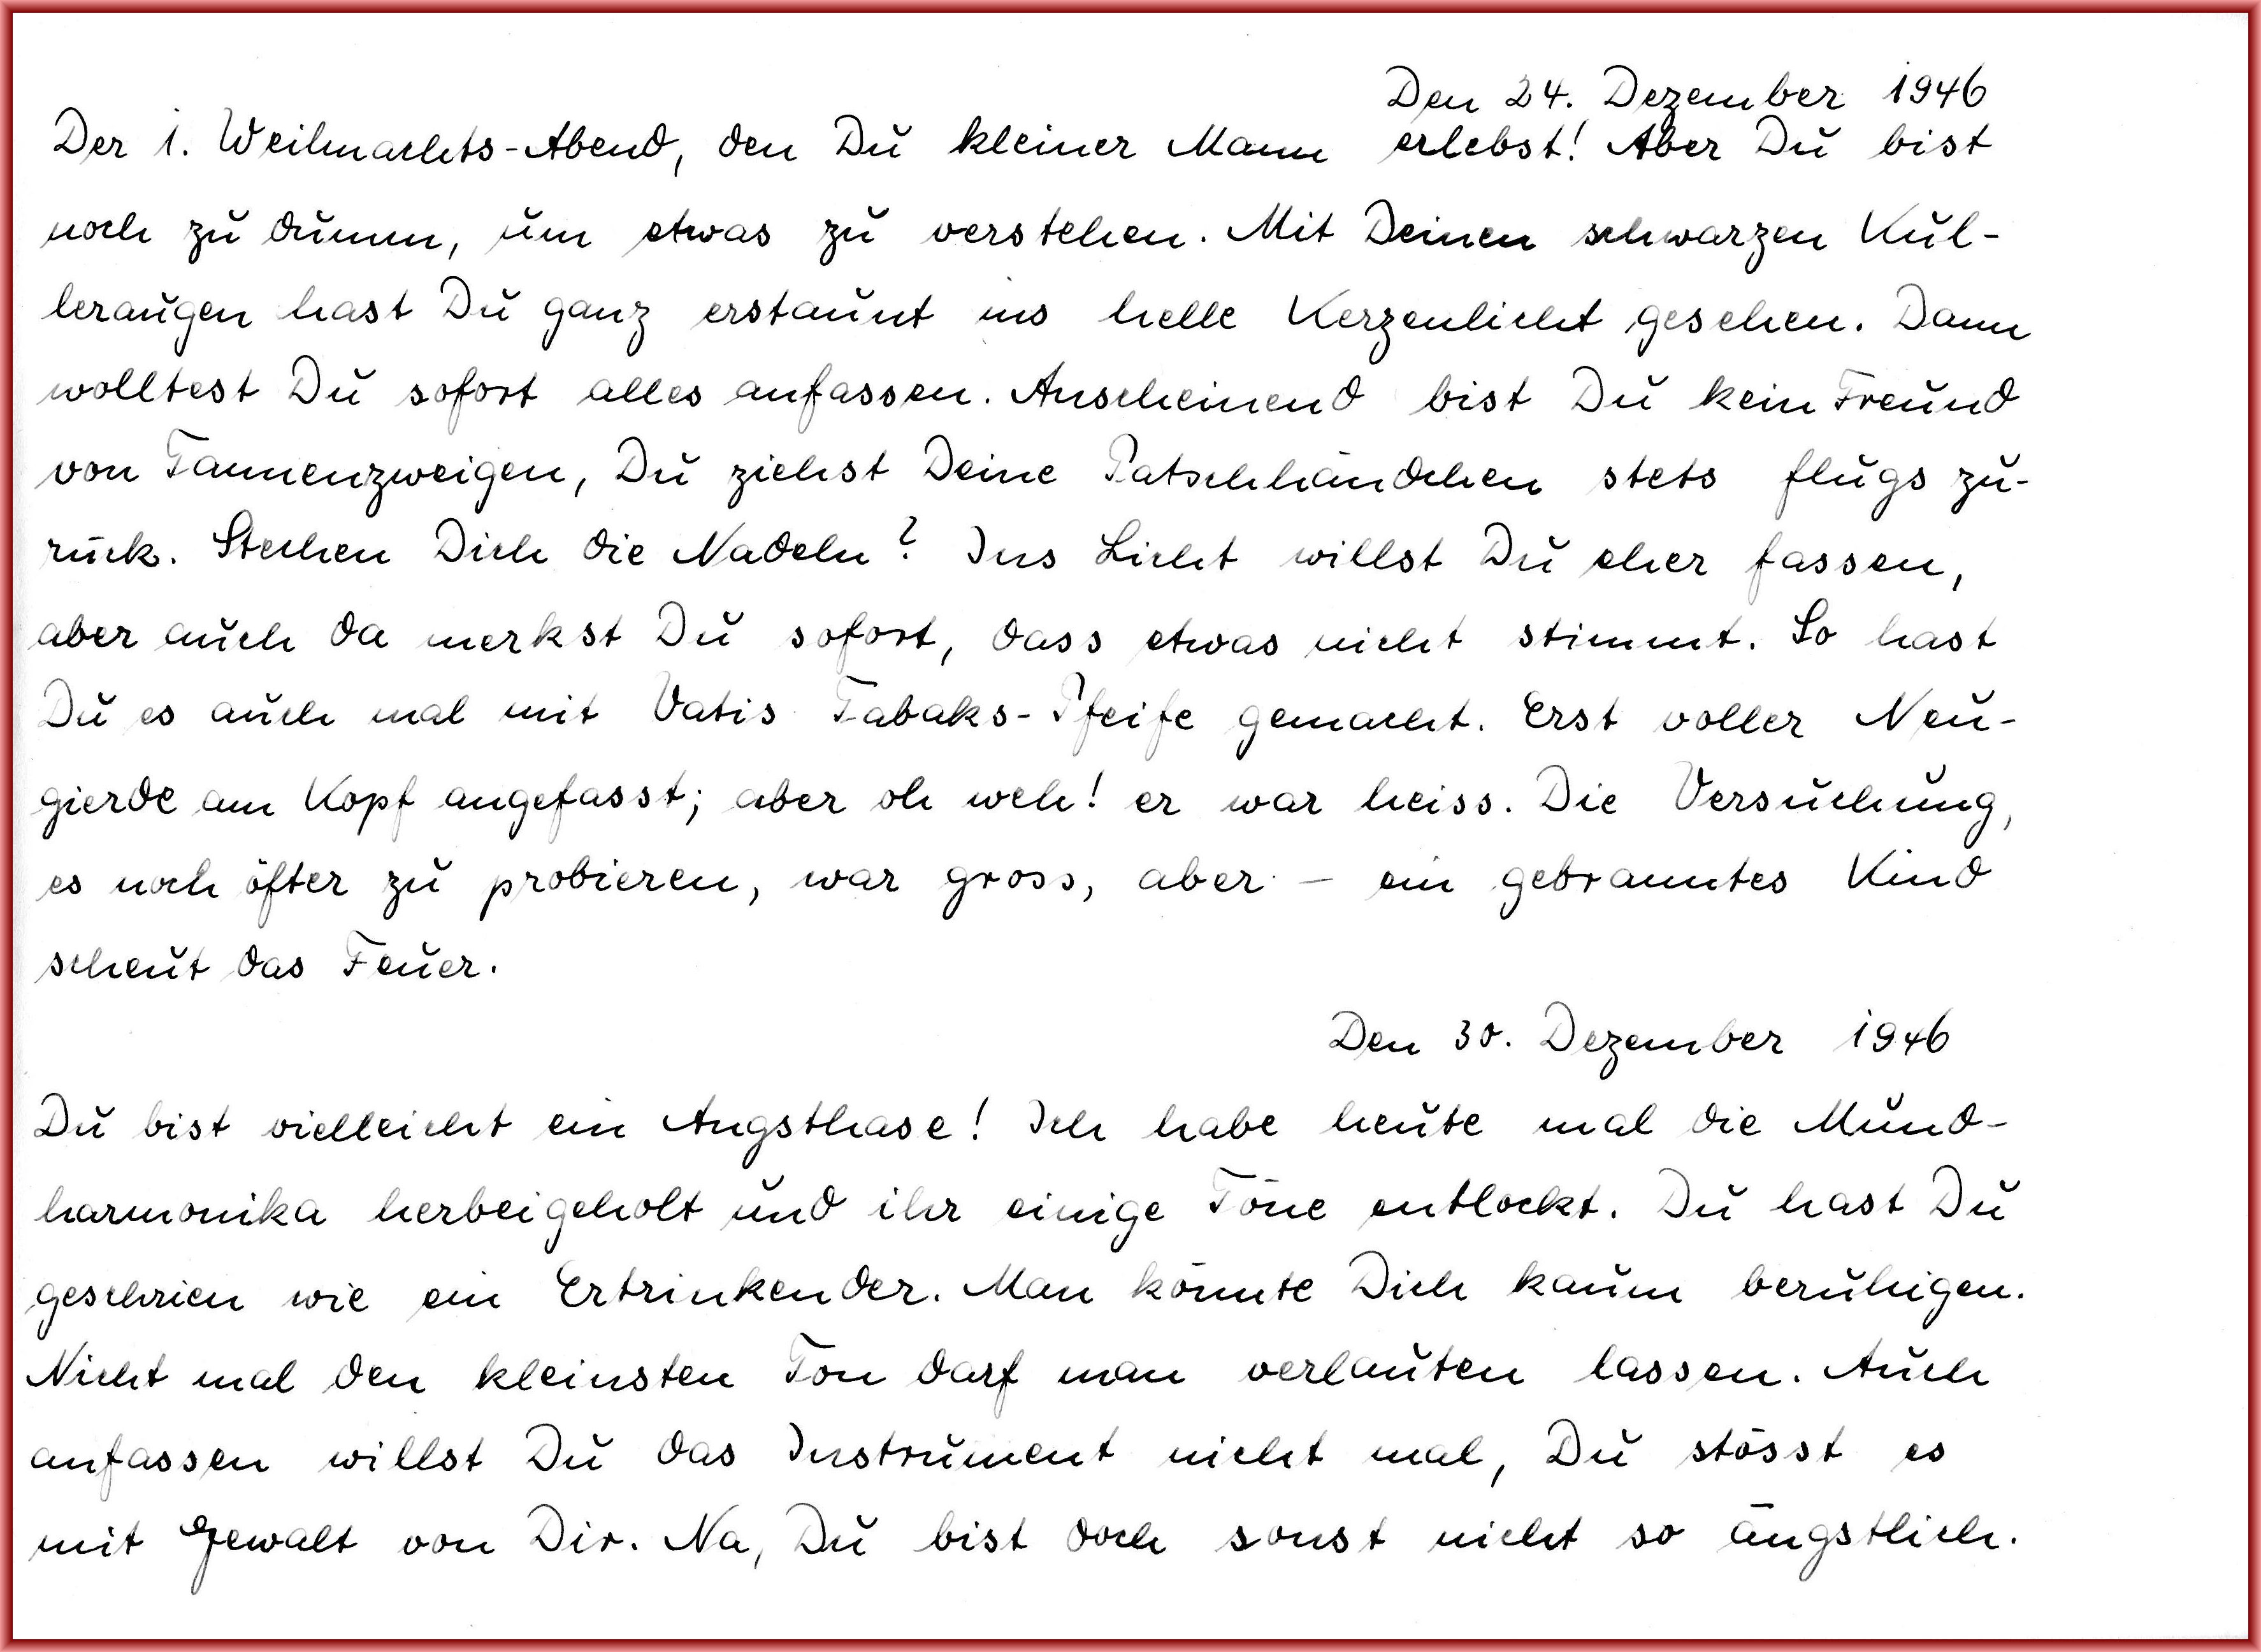 Den 24. Dezember 1946
Der 1. Weihnachts-Abend, den Du kleiner Mann erlebst! Aber Du bist
noch zu dumm, um etwas zu verstehen. Mit Deinen schwarzen Kul-
leraugen hast Du ganz erstaunt ins helle Kerzenlicht gesehen. Dann
wolltest Du sofort alles anfassen. Anscheinend bist Du kein Freund
von Tannenzweigen, Du ziehst Deine Patschhändchen stets flugs zu-
rück. Stechen Dich die Nadeln? Ins Licht willst Du eher fassen,
aber auch da merkst Du sofort, dass etwas nicht stimmt. So hast
Du es auch mal mit Vatis Tabaks-Pfeife gemacht. Erst voller Neu-
gierde am Kopf angefasst; aber oh weh! er war heiss. Die Versuchung,
es noch öfter zu probieren, war gross, aber – ein gebranntes Kind
scheut das Feuer.
Den 30. Dezember 1946
Du bist vielleicht ein Angsthase! Ich habe heute mal die Mund-
harmonika herbeigeholt und ihr einige Töne entlockt. Du hast Du
geschrien wie ein Ertrinkender. Man könnte Dich kaum beruhigen.
Nicht mal den kleinsten Ton darf man verlauten lassen. Auch
anfassen willst Du das Instrument nicht mal, Du stösst es
mit Gewalt von Dir. Na, Du bist doch sonst nicht so ängstlich.